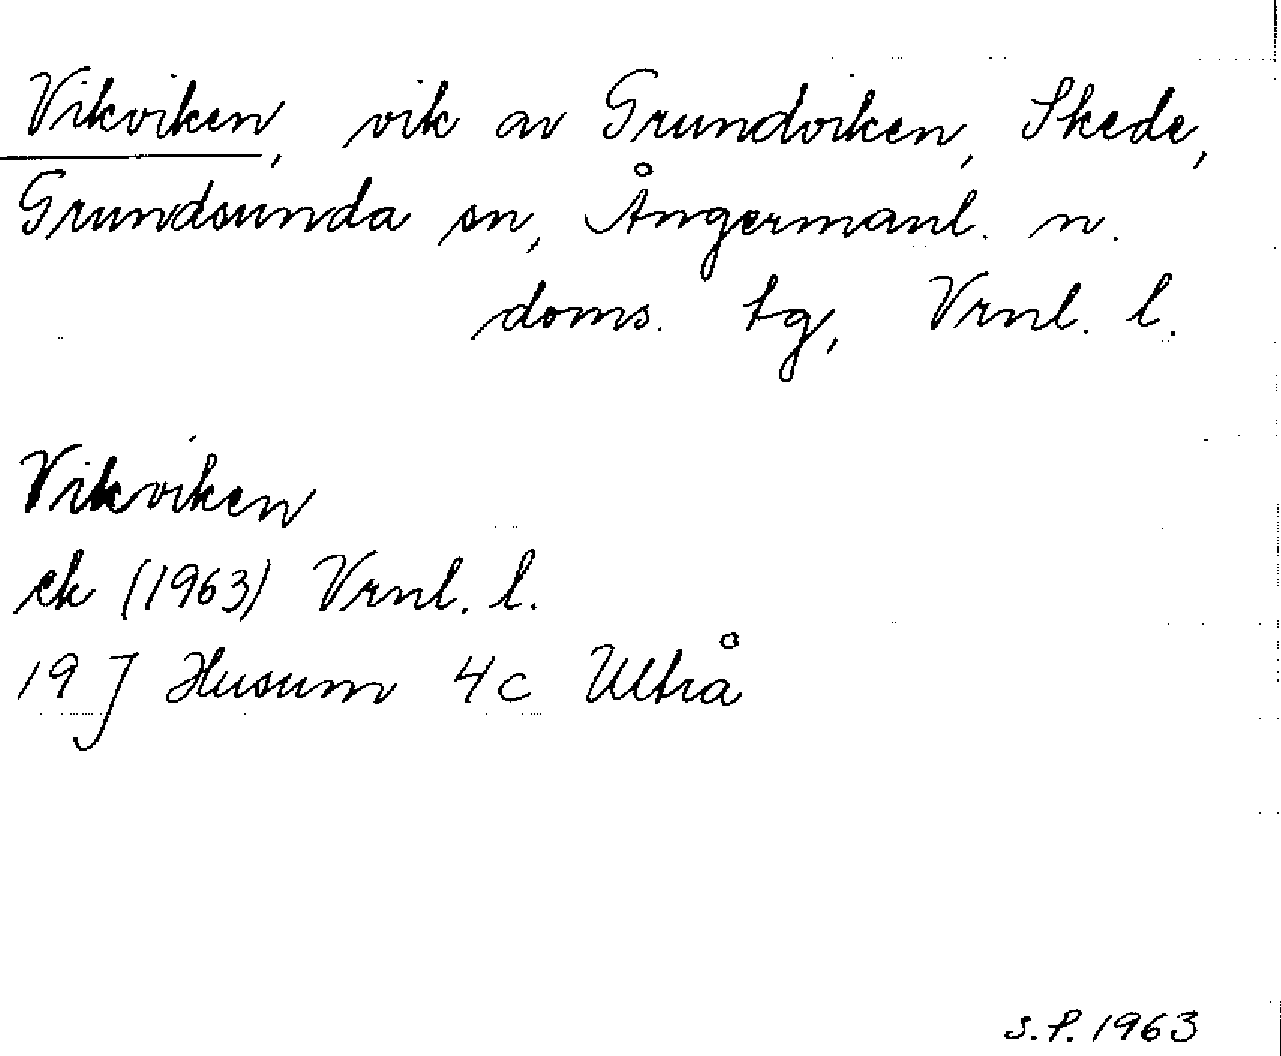 Vikviken, vik av Grundviken, Skede,
Grundsunda sn, Ångermanl. n.
doms. tg, Vrnl. l.
Vikviken
ek (1963) Vrnl. l.
19 J Husum 4c Ultrå
S.P. 1963